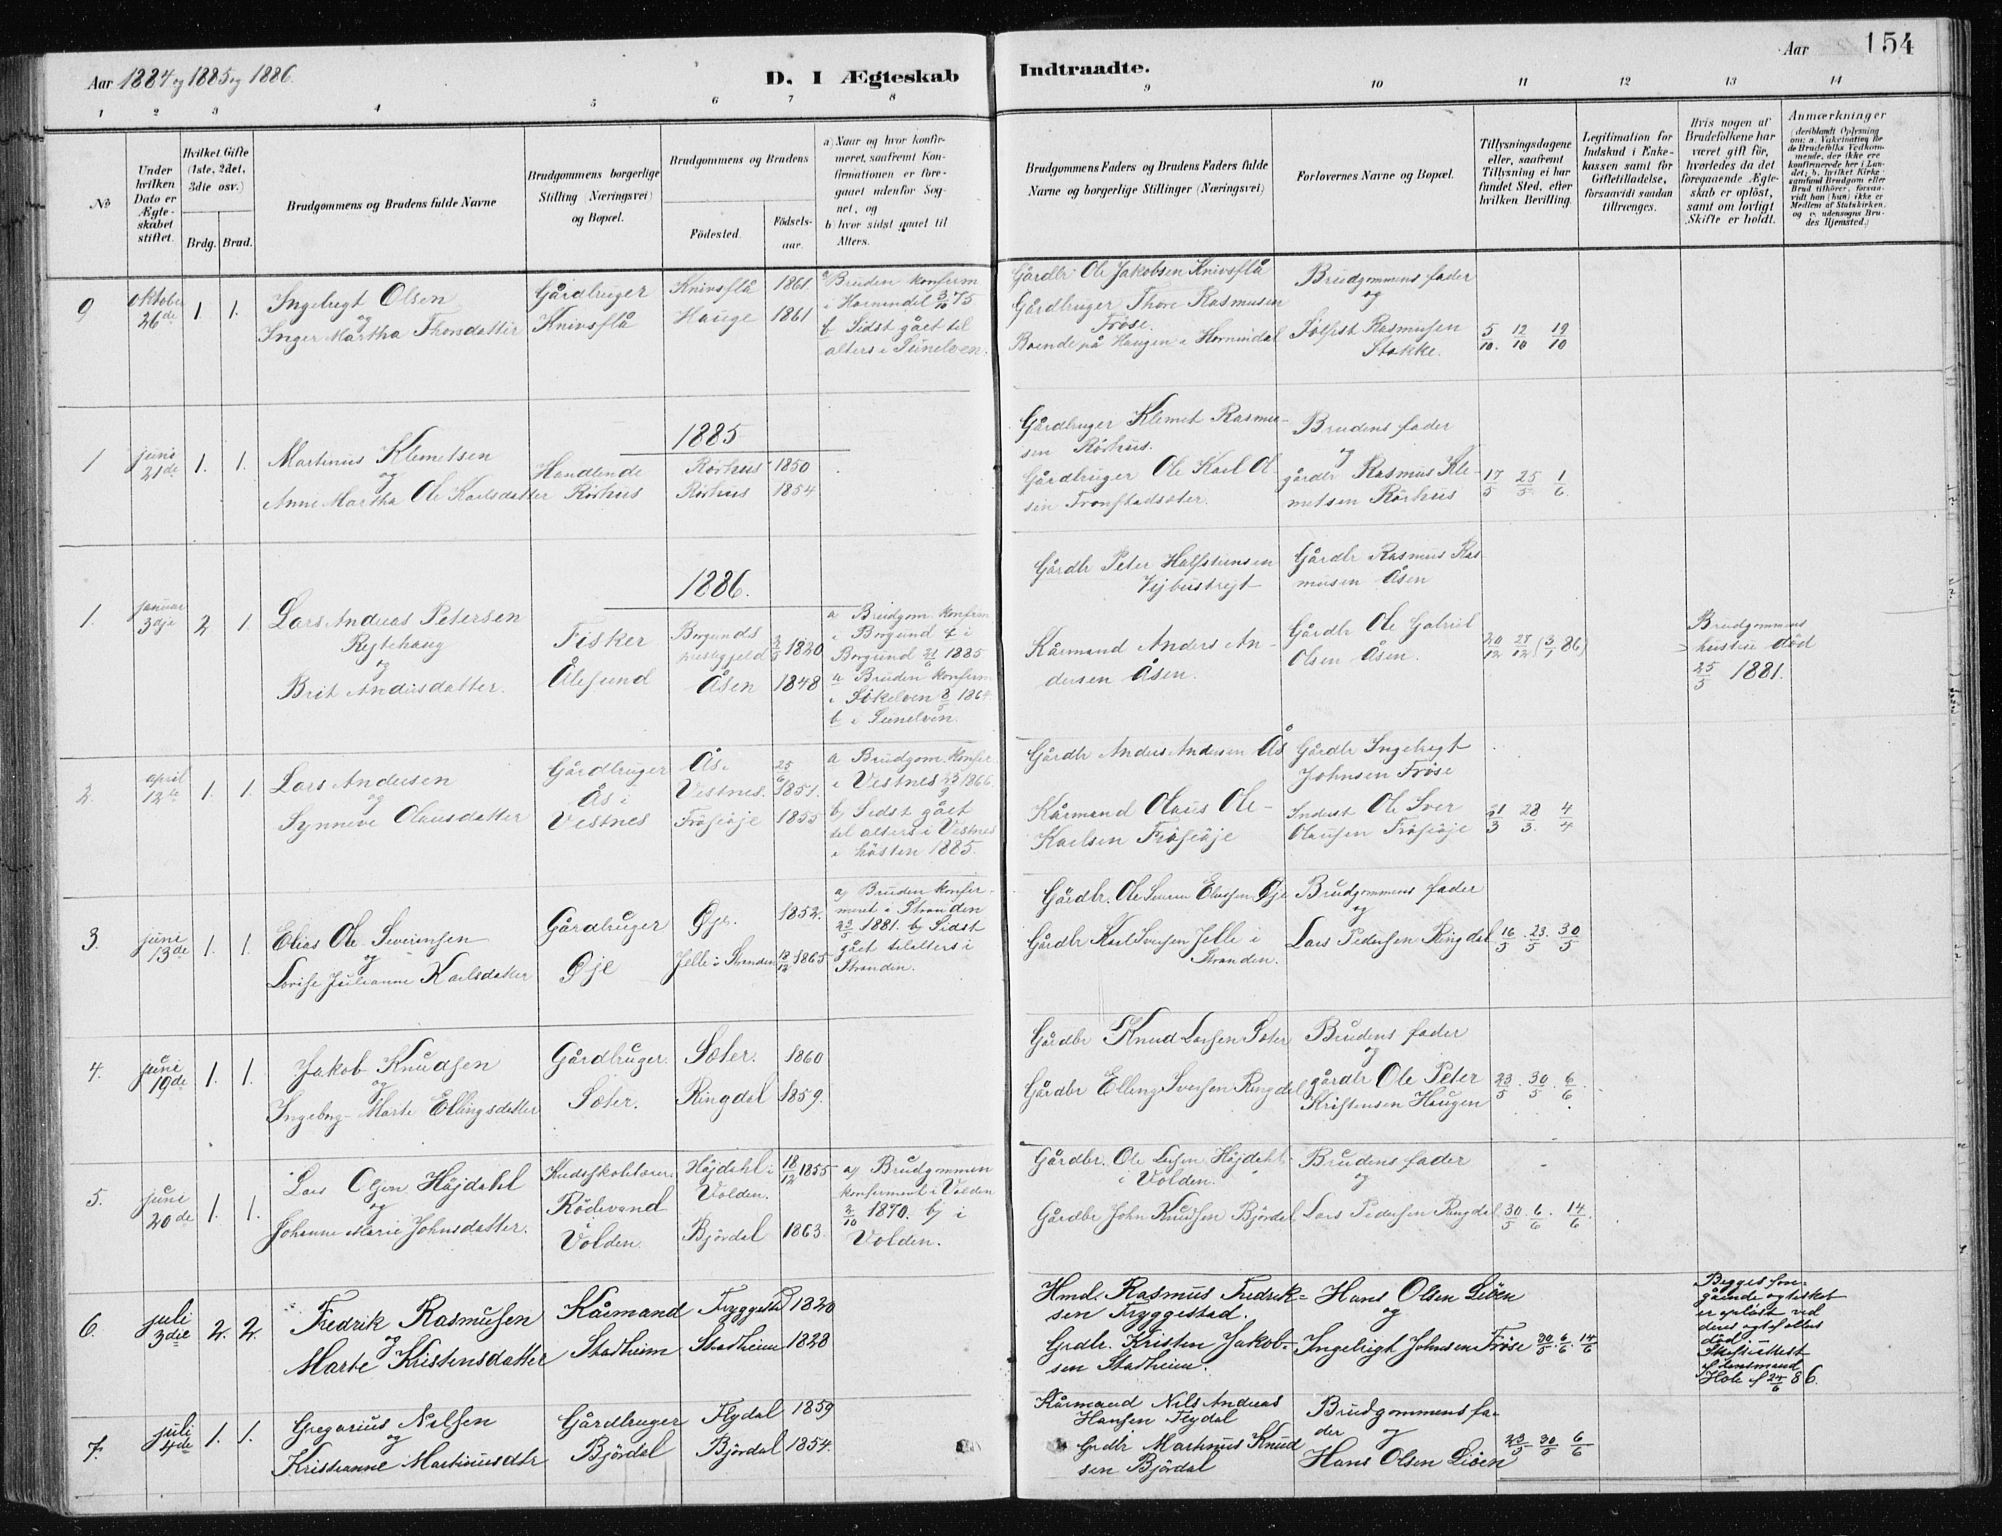 Aar 1884 og 1885 og 1886.
D. I Ægteskab Indtraadte.
Aar 154
1 2 3 4 5 6 7 8 9 10 11 12 13 14
No
Under hvilken Dato er Ægteskabet stiftet.
Hvilket Gifte (1ste, 2det, 3die osv.)
Brdg. Brud.
Brudgommens og Brudens fulde Navne
Brudgommens borgerlige Stilling (Næringsvei) og Bopæl.
Brudgommens og Brudens
Fødested.
Fødsels-aar.
a) Naar og hvor konfirmeret, saafremt Konfirmationen er foregaaet udenfor Sognet, og
b) hvor sidst gaaet til Alters.
Brudgommens Faders og Brudens Faders fulde Navne og borgerlige Stillinger (Næringsvei)
Forlovernes Navne og Bopæl.
Tillysningsdagene eller, saafremt Tillysning ei har fundet Sted, efter hvilken Bevilling.
Legitimation for Indskud i Enkekassen samt for Giftetilladelse, forsaavidt saadan tiltrænges.
Hvis nogen af Brudefolkene har været gift før, hvorledes da det foregaaende Ægteskab er opløst, samt om lovligt Skifte er holdt.
Anmærkninger
9 oktober 26de 1. 1.
Ingebrigt Olsen
og
Inger Martha Thoresdatter
Gårdbruger
Knivsflå
Knivsflå 1861
Hauge 1861
a) Bruden konfirm
i Hornindal 3/10 75
b. Sidst gået til
alters i Sunelven.
Gårdbr. Ole Jakobsen Knivsflå
Gårdbruger Thore Rasmusen
Frøse.
Boende på Haugen i Hornindal
Brudgommens fader
og
Sølfest Rasmusen
Stokke.
5/10. 12/10 19/10
1885
1 juni 21de 1. 1.
Martinus Klemetsen
og
Anne Martha Ole Karlsdatter
Handlende
Rørhus
Rørhus 1850
Rørhus 1854
Gårdbruger Klemet Rasmu-
sen Rørhus.
Gårdbruger Ole Karl Ol-
sen Tronstadsæter.
Brudens fader
og
gårdbr Rasmus Kle-
metsen Rørhus
17/5 25/5 1/6
1886.
1. januar 3dje 2 1.
Lars Andreas Petersen
Rejtehaug
og
Brit Andersdatter.
Fisker
Ålesund
Borgunds
præstegjeld 3/5 1820
Åsen 1848
a Brudgom. konfirm
i Borgund b i
Borgund 21/6 1885
a Bruden konfirm
i Sökelven 8/5 1864.
b i Sunelven.
Gårdbr Peter Halfstensen
Kårmand Anders An-
dersen Åsen.
Gårdbr Rasmus Ras
musen Åsen
Gårdbr Ole Gabriel
Olsen Åsen.
20/12 27/12 (3/1 86)
Brudgommens
hustru død
25/5 1881.
2. april 12te 1. 1.
Lars Andersen
og
Synneve Olausdatter
Gårdbruger
Ås i
Vestnes
Ås i
Vestnes. 25/6 1851.
Frøsøje 1855
a Brudgom. konfir
i Vestnes 23/9 1866.
b) Sidst gået
til alters i Vestnes
i høsten 1885.
Gårdbr Anders Andersen Ås
Kårmand Olaus Ole-
Karlsen Frøsøje
Gårdbr Ingebrigt
Johnsen Frøse
Inderst Ole Iver
Olausen Frøsøje
21/3 28/3. 4/4
3. juni 13de 1. 1.
Elias Ole Severinsen
og
Lovise Julianne Karlsdatter
Gårdbruger
Øje
Øje. 1852.
Jelle i Stranden 18/12 1865
a) Bruden konfir-
meret i Stranden
23/5 1881. b) Sidst
gået til alters i
Stranden.
Gårdbr. Ole Severin Eliassen Øje
Gårdbr Karl Iversen Jelle i
Stranden.
Brudgommens fader
og
Lars Pedersen Ringdal
16/5. 23/5. 30/5
4. juni 19de 1. 1.
Jakob Knudsen
og
Ingeborg Marte Ellingsdatter
Gårdbruger.
Sæter.
Sæter. 1860
Ringdal 1859.
Gårdbr Knud Larsen Sæter
Gårdbr Elling Iversen Ringdal
Brudens fader
og
gårdbr Ole Peter
Kristensen Haugen
23/5. 30/5. 6/6
5. juni 20de 1. 1.
Lars Olsen Højdahl
og
Johanne Marie Johnsdatter.
Kredsskolelærer.
Rødevand
Volden
Højdahl i
Volden. 18/12 1855
Bjørdal 1863.
a) Brudgommen
konfirmeret i Volden
2/10 1870. b) i
Volden.
Gårdbr. Ole Larsen Højdahl
i Volden.
Gårdbr John Knudsen Bjørdal
Brudens fader
og
Lars Pedersen Ringdal
30/5 6/6. 14/6.
6. juli 3die 2. 2.
Fredrik Rasmusen
og
Marte Kristensdatter
Kårmand
Stadheim
Tryggestad 1820
Stadheim 1828
Hmd. Rasmus Fredrik-
sen Tryggestad.
Grdbr. Kristen Jakob-
sen Stadheim.
Hans Olsen Liøen
og
Ingebrigt Johnsen Frøse
30/5. 6/6. 14/6
Begges fore-
gående ægteskab
er opløst ved
deres ægtefælles
død. -
Skifteattest
af lensmand
Hole af 24/6 86.
7. juli 4de 1. 1.
Gregorius Nilsen
og
Kristianne Martinusdtr
Gårdbruger
Bjørdal
Flydal 1859
Bjørdal 1854.
Kårmand Nils Andreas
Hansen Flydal
Grdbr Martinus Knud
sen Bjørdal
Brudgommens fa-
der og
Hans Olsen Liøen
23/5 30/5 6/6